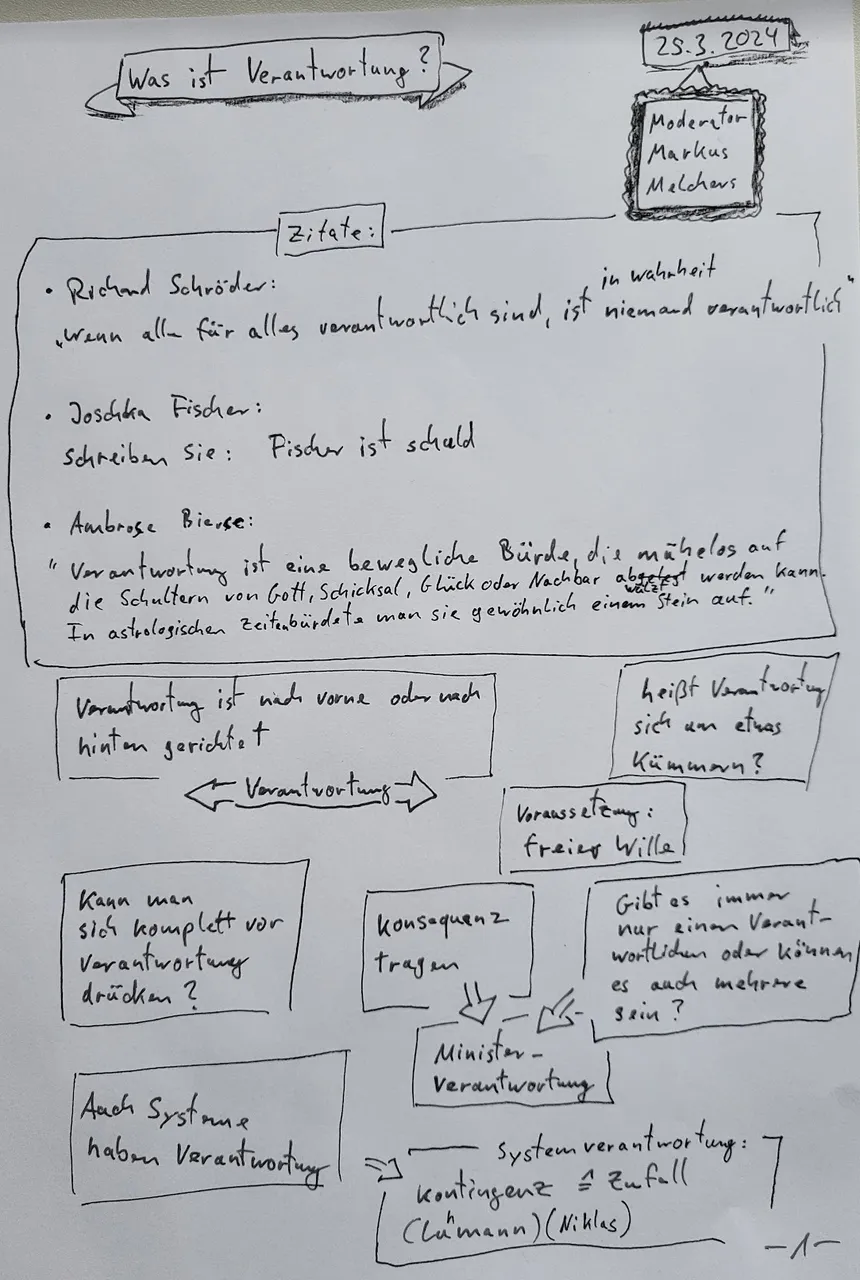 Was ist Verantwortung?
25.3.2024
Moderator
Markus
Melchers
Zitate:
• Richard Schröder:
in wahrheit
„Wenn alle für alles verantwortlich sind, ist niemand verantwortlich"
• Joschka Fischer:
schreiben sie: Fischer ist schuld
• Ambrose Bierse:
" Verantwortung ist eine bewegliche Bürde, die mühelos auf
die Schultern von Gott, Schicksal, Glück oder Nachbar abgewälzt werden kann.
In astrologischen Zeiten bürdete man sie gewöhnlich einem Stein auf."
Verantwortung ist nach vorne oder nach
hinten gerichtet
Verantwortung
heißt Verantwortung
sich um etwas
Kümmern?
Voraussetzung:
freier Wille
Kann man
sich komplett vor
Verantwortung
drücken?
Konsequenz
tragen
Gibt es immer
nur einen Verant-
wortlichen oder können
es auch mehrere
sein?
Minister-
verantwortung
Auch Systeme
haben Verantwortung
Systemverantwortung:
Kontingenz ≙ Zufall
(Luhmann) (Niklas)
-1-